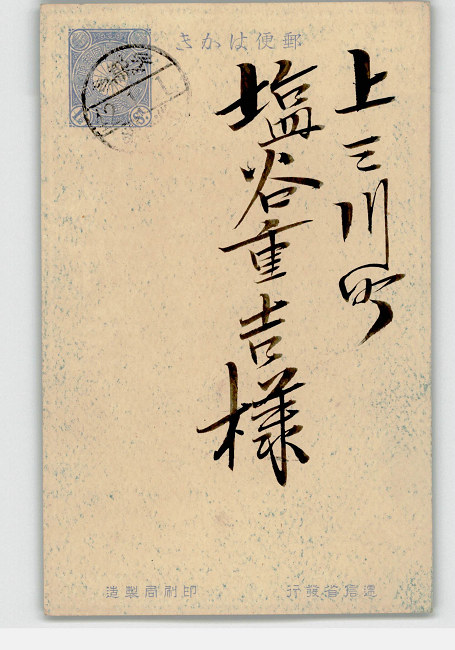 郵便はかき
上三川町
塩谷重吉様
逓信省發行
印刷局製造